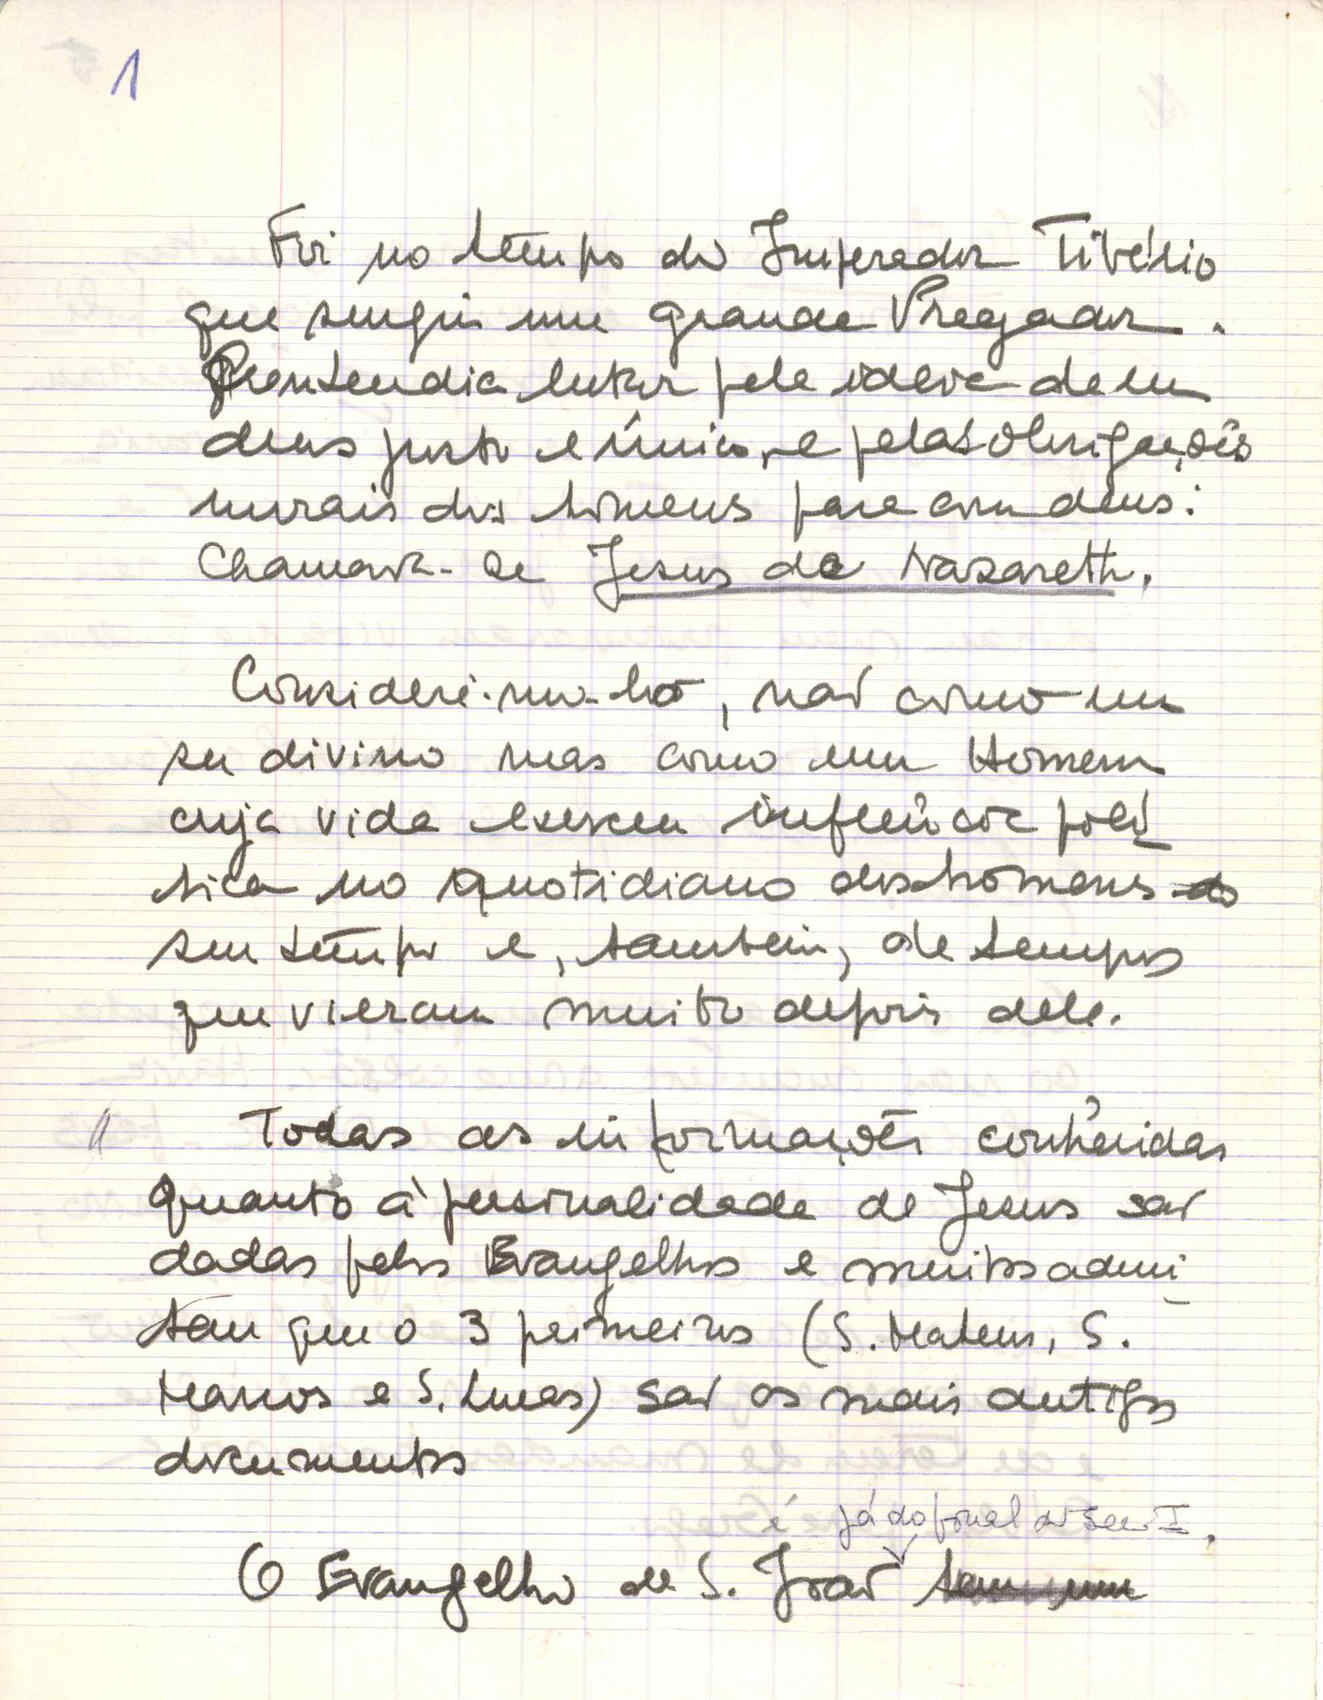 1
Foi no tempo do Imperador Tibério
que surgiu um grande Pregador.
Pretendia lutar pela ideia de um
deus justo e único, e pelas obrigações
morais dos homens para com deus:
Chamava-se Jesus de Nazareth.
Consideré-mo-lo, não como um
ser divino mas como um Homem
cuja vida exerceu influência polí
tica no quotidiano dos homens do
seu tempo e, também, de tempos
que vieram muito depois dele.
Todas as informações conhecidas
quanto à personalidade de Jesus são
dadas pelos Evangelhos e muitos admi
tam que o 3 primeiros (S. Mateus, S.
Marcos e S. Lucas) são os mais antigos
documentos
é já do final do Sec I.
O Evangelho de S. João